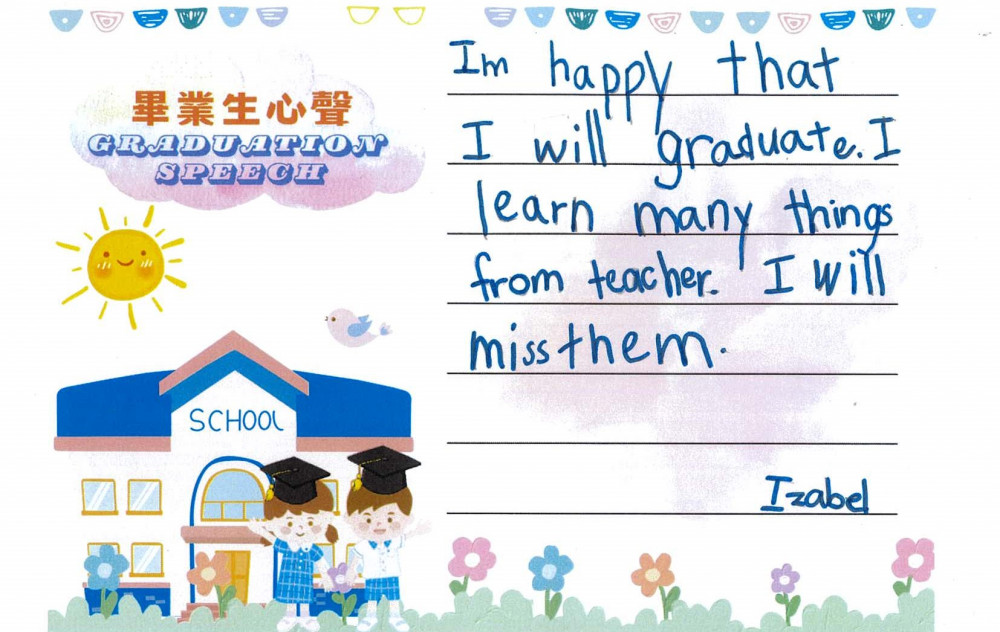 畢業生心聲
GRADUATION
SPEECH
SCHOOL
Im happy that
I will graduate. I
learn many things
from teacher. I will
miss them.
Izabel